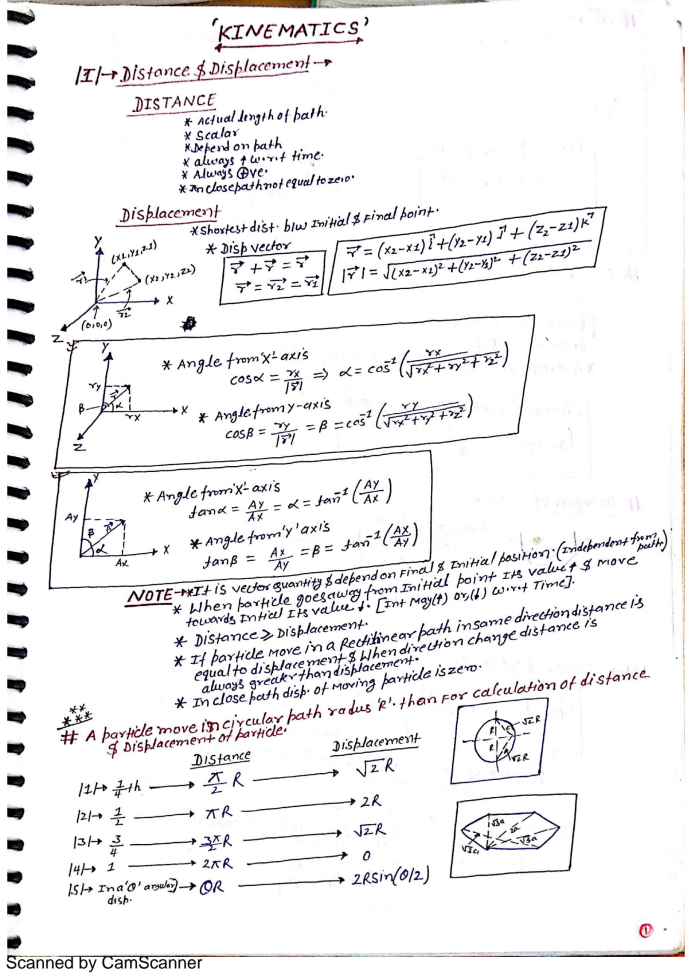 'KINEMATICS'
|I|→ Distance & Displacement →
DISTANCE
* Actual length of path.
* Scalar
* Depend on path
* always ↑ w.r.t time.
* Always ⊕ve.
* In close path not equal to zero.
Displacement
* Shortest dist. b/w Initial & Final point.
* Disp vector
r⃗ + r⃗ = r⃗
r⃗ = r₂⃗ = r₁⃗
r⃗ = (x2-x1) î + (y2-y1) ĵ + (z2-z1) k⃗
|r⃗| = √(x2-x1)² + (y2-y1)² + (z2-z1)²
Y
(x1,y1,z1)
(x2,y2,z2)
r1⃗
r2⃗
X
(0,0,0)
Z
Y
ry
r⃗
β
α
rx
X
Z
* Angle from 'X'-axis
cosα = rx/|r⃗| ⇒ α = cos⁻¹ (rx/√rx²+ry²+rz²)
* Angle from y-axis
cosβ = ry/|r⃗| = β = cos⁻¹ (ry/√rx²+ry²+rz²)
Y
Ay
β
α
Ax
X
* Angle from 'x'-axis
tanα = Ay/Ax = α = tan⁻¹ (Ay/Ax)
* Angle from 'y' axis
tanβ = Ax/Ay = β = tan⁻¹ (Ax/Ay)
NOTE → * It is vector quantity & depend on Final & Initial position. (Independent from path)
* When particle goes away from Initial point Its value ↑ & move
towards Intial Its value ↓. [Int May(↑) or,(↓) w.r.t Time].
* Distance ≥ Displacement.
* If particle move in a Rectilinear path in same direction distance is
equal to displacement & When direction change distance is
always greater than displacement.
* In close path disp. of moving particle is zero.
** ***
# A particle move in circular path radus 'R'. than For calculation of distance
& Displacement of particle.
Distance
Displacement
|1|→ 1/4 th → π/2 R → √2R
|2|→ 1/2 → πR → 2R
|3|→ 3/4 → 3π/2 R → √2R
|4|→ 1 → 2πR → 0
|5|→ In a 'θ' angular disp. → θR → 2Rsin(θ/2)
R
R
√2R
√2R
√3a
2a
√3a
√3a
1
Scanned by CamScanner